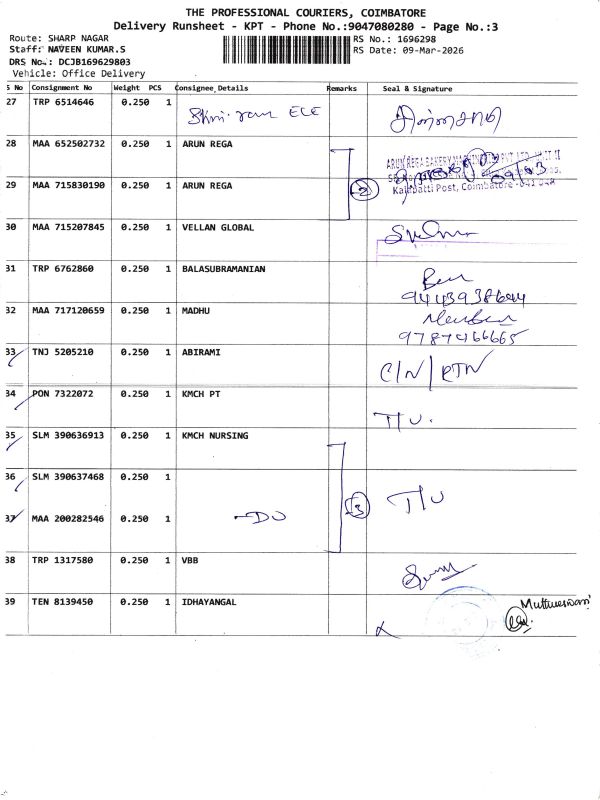 THE PROFESSIONAL COURIERS, COIMBATORE
Delivery Runsheet - KPT - Phone No.:9047080280 - Page No.:3
Route: SHARP NAGAR
RS No.: 1696298
Staff: NAVEEN KUMAR.S
RS Date: 09-Mar-2026
DRS No.: DCJB169629803
Vehicle: Office Delivery
S No Consignment No Weight PCS Consignee Details Remarks Seal & Signature
27 TRP 6514646 0.250 1 ELE
28 MAA 652502732 0.250 1 ARUN REGA
29 MAA 715830190 0.250 1 ARUN REGA 2
Kalapatti Post, Coimbatore -641 048
30 MAA 715207845 0.250 1 VELLAN GLOBAL
31 TRP 6762860 0.250 1 BALASUBRAMANIAN
32 MAA 717120659 0.250 1 MADHU
9787466665
33 TNJ 5205210 0.250 1 ABIRAMI C/N/RTN
34 PON 7322072 0.250 1 KMCH PT T/U.
35 SLM 390636913 0.250 1 KMCH NURSING
36 SLM 390637468 0.250 1 3 T/U
37 MAA 200282546 0.250 1 -DO
38 TRP 1317580 0.250 1 VBB
39 TEN 8139450 0.250 1 IDHAYANGAL Muthueswari